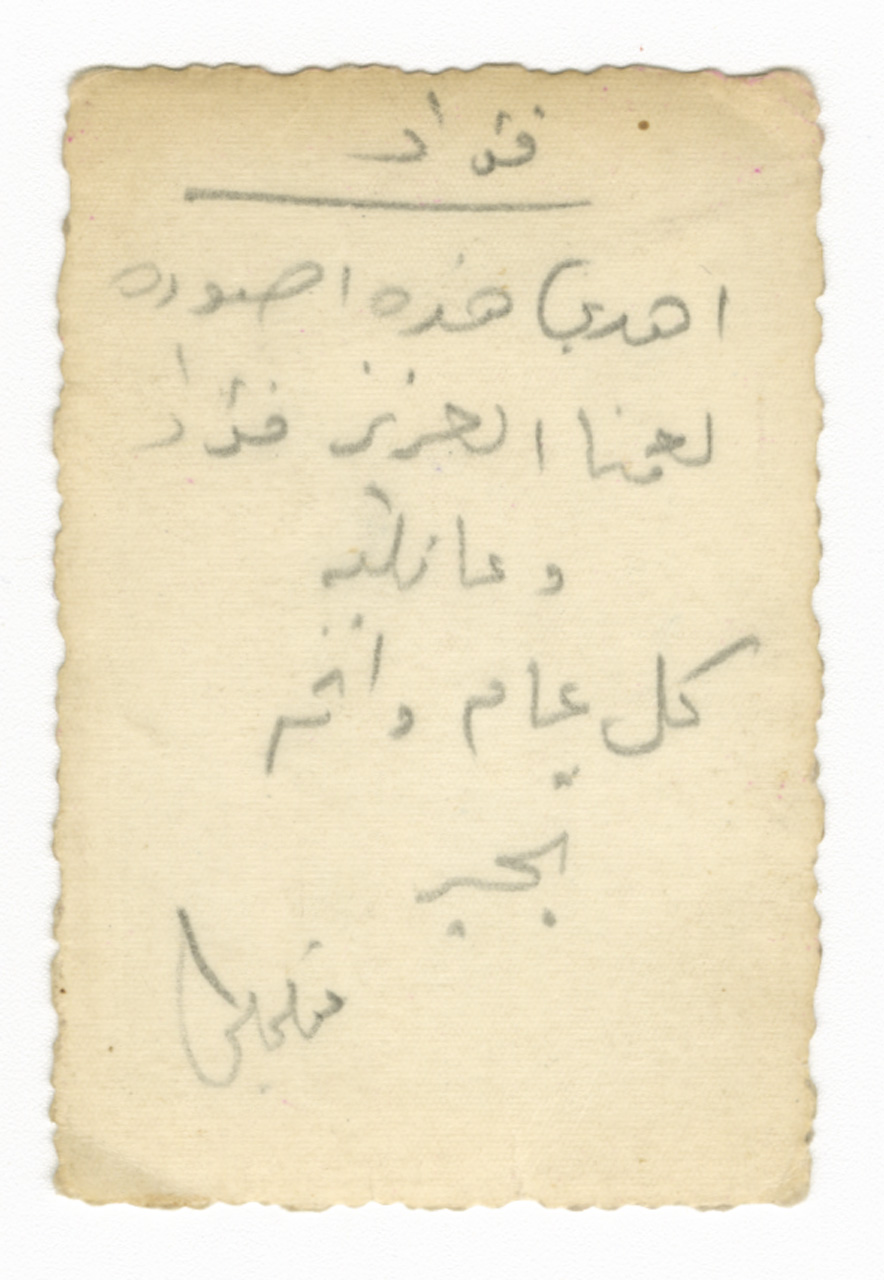 فؤاد
اهدي هذه اصوره
لعمنا العزيز فؤاد
وعائلته
كل عام وانتم
بخير